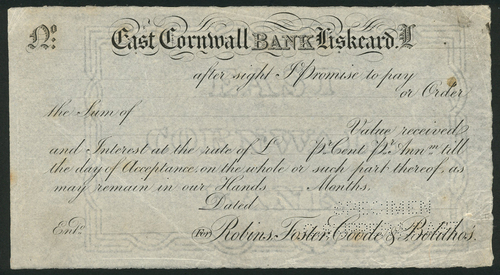 No. East Cornwall BANK Liskeard. £
after sight I Promise to pay
or Order
the Sum of
Value received
and Interest at the rate of £ Pr. Cent Pr. Annm. till
the day of Acceptance on the whole or such part thereof, as
may remain in our Hands Months.
Dated
SPECIMEN
Entd. (For) Robins, Foster, Coode & Bolitho's.